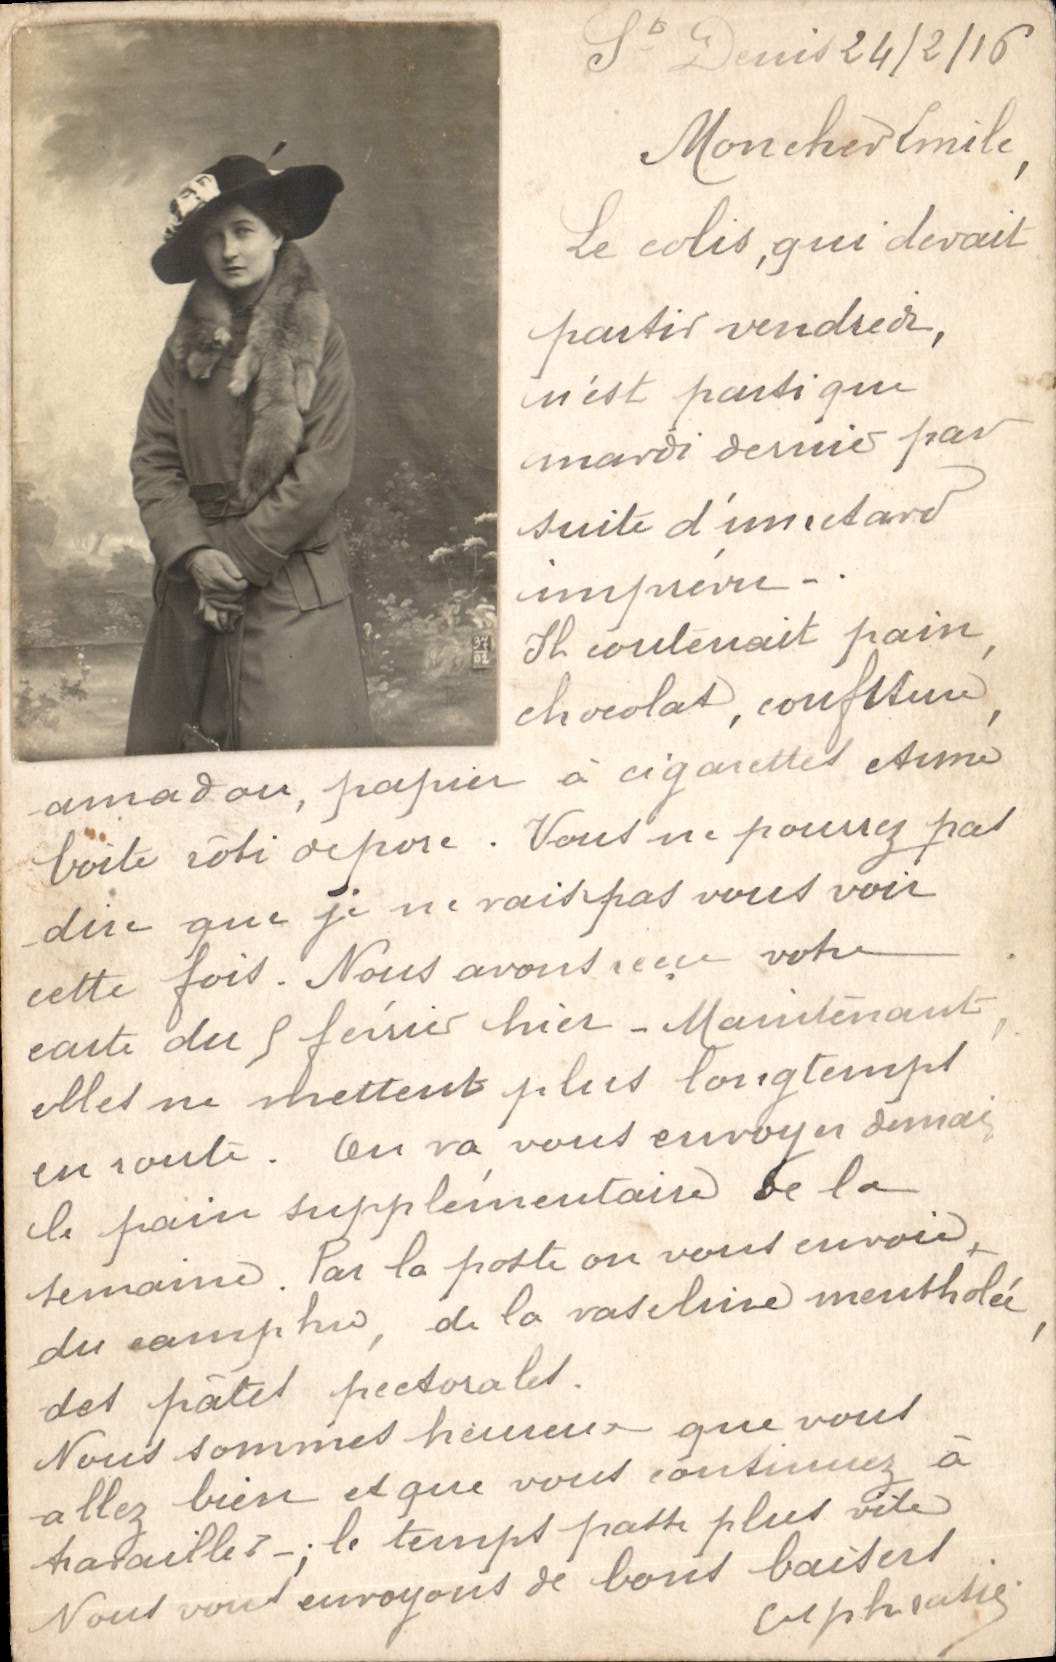 St Denis 24/2/16
Mon cher Emile,
Le colis, qui devait
partir vendredi,
n'est parti que
mardi dernier par
suite d'un retard
imprévu -.
Il contenait pain,
chocolat, confiture,
amadou, papier à cigarettes et une
boite rôti de porc. Vous ne pourrez pas
dire que je ne vais pas vous voir
cette fois. Nous avons reçu votre
carte du 5 février hier - Maintenant,
elles ne mettent plus longtemps
en route. On va vous envoyer demain
le pain supplémentaire de la
semaine. Par la poste on vous envoie
du camphre, de la vaseline mentholée,
des pâtes pectorales.
Nous sommes heureux que vous
allez bien et que vous continuez à
travailler -; le temps passe plus vite
Nous vous envoyons de bons baisers.
Euphrasie
97
02